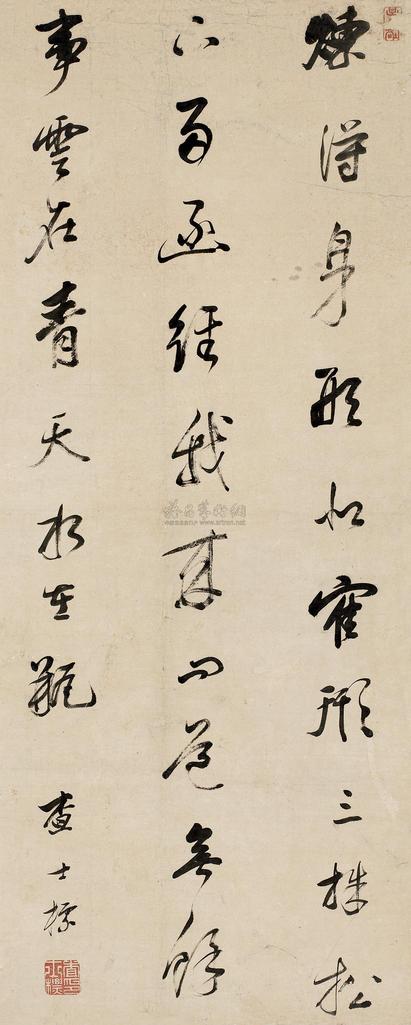 煉得身形似寉形三株松
下兩函經我來問道無餘
事雲在青天水在瓶
查士標
www.artron.net